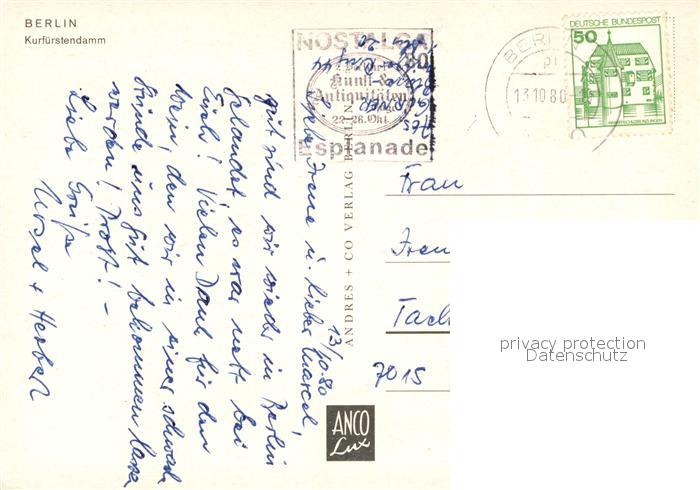 BERLIN
Kurfürstendamm
NOSTALGA 80
Kunst &
Antiquitäten
22.-26. Okt.
Esplanade
BERLIN
13.10.80
DEUTSCHE BUNDESPOST
50
WASSERSCHLOSS INZLINGEN
13/10.80
Liebe Irene u. lieber Marcel,
gut sind wir wieder in Berlin
gelandet, es war nett bei
Euch! Vielen Dank für den
Wein, den wir in einer schwachen
Stunde uns gut bekommen lassen
werden! Prost! –
Liebe Grüße
Ursel + Herbert
ANDRES + CO VERLAG BERLIN
ANCO
Lux
Frau
7015
privacy protection
Datenschutz